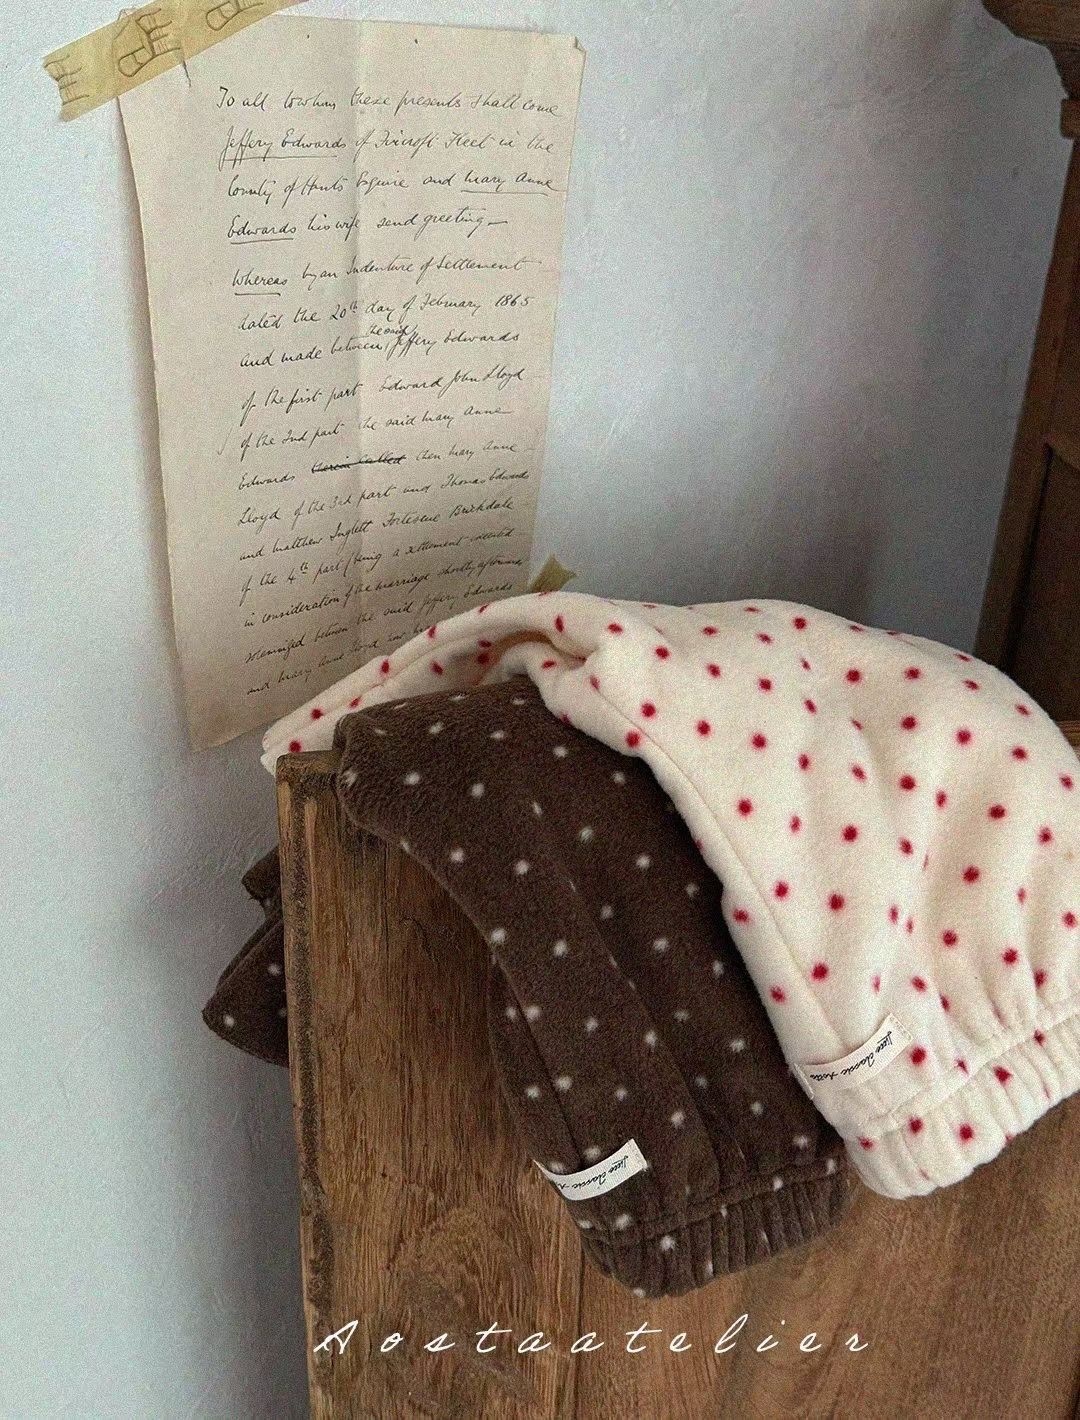 To all to whom these presents shall come
Jeffery Edwards of Fircroft Fleet in the
County of Hants Esquire and Mary Anne
Edwards his wife send greeting
Whereas by an Indenture of Settlement
dated the 20th day of February 1865
and made between the said Jeffery Edwards
of the first part Edward John Lloyd
of the 2nd part the said Mary Anne
Edwards therein called then Mary Anne
Lloyd of the 3rd part and Thomas Edwards
and Matthew Inglett Fortescue Brickdale
of the 4th part (being a settlement executed
in consideration of the marriage shortly afterwards
solemnized between the said Jeffery Edwards
and Mary Anne Lloyd now
classic
classic
Aostaatelier